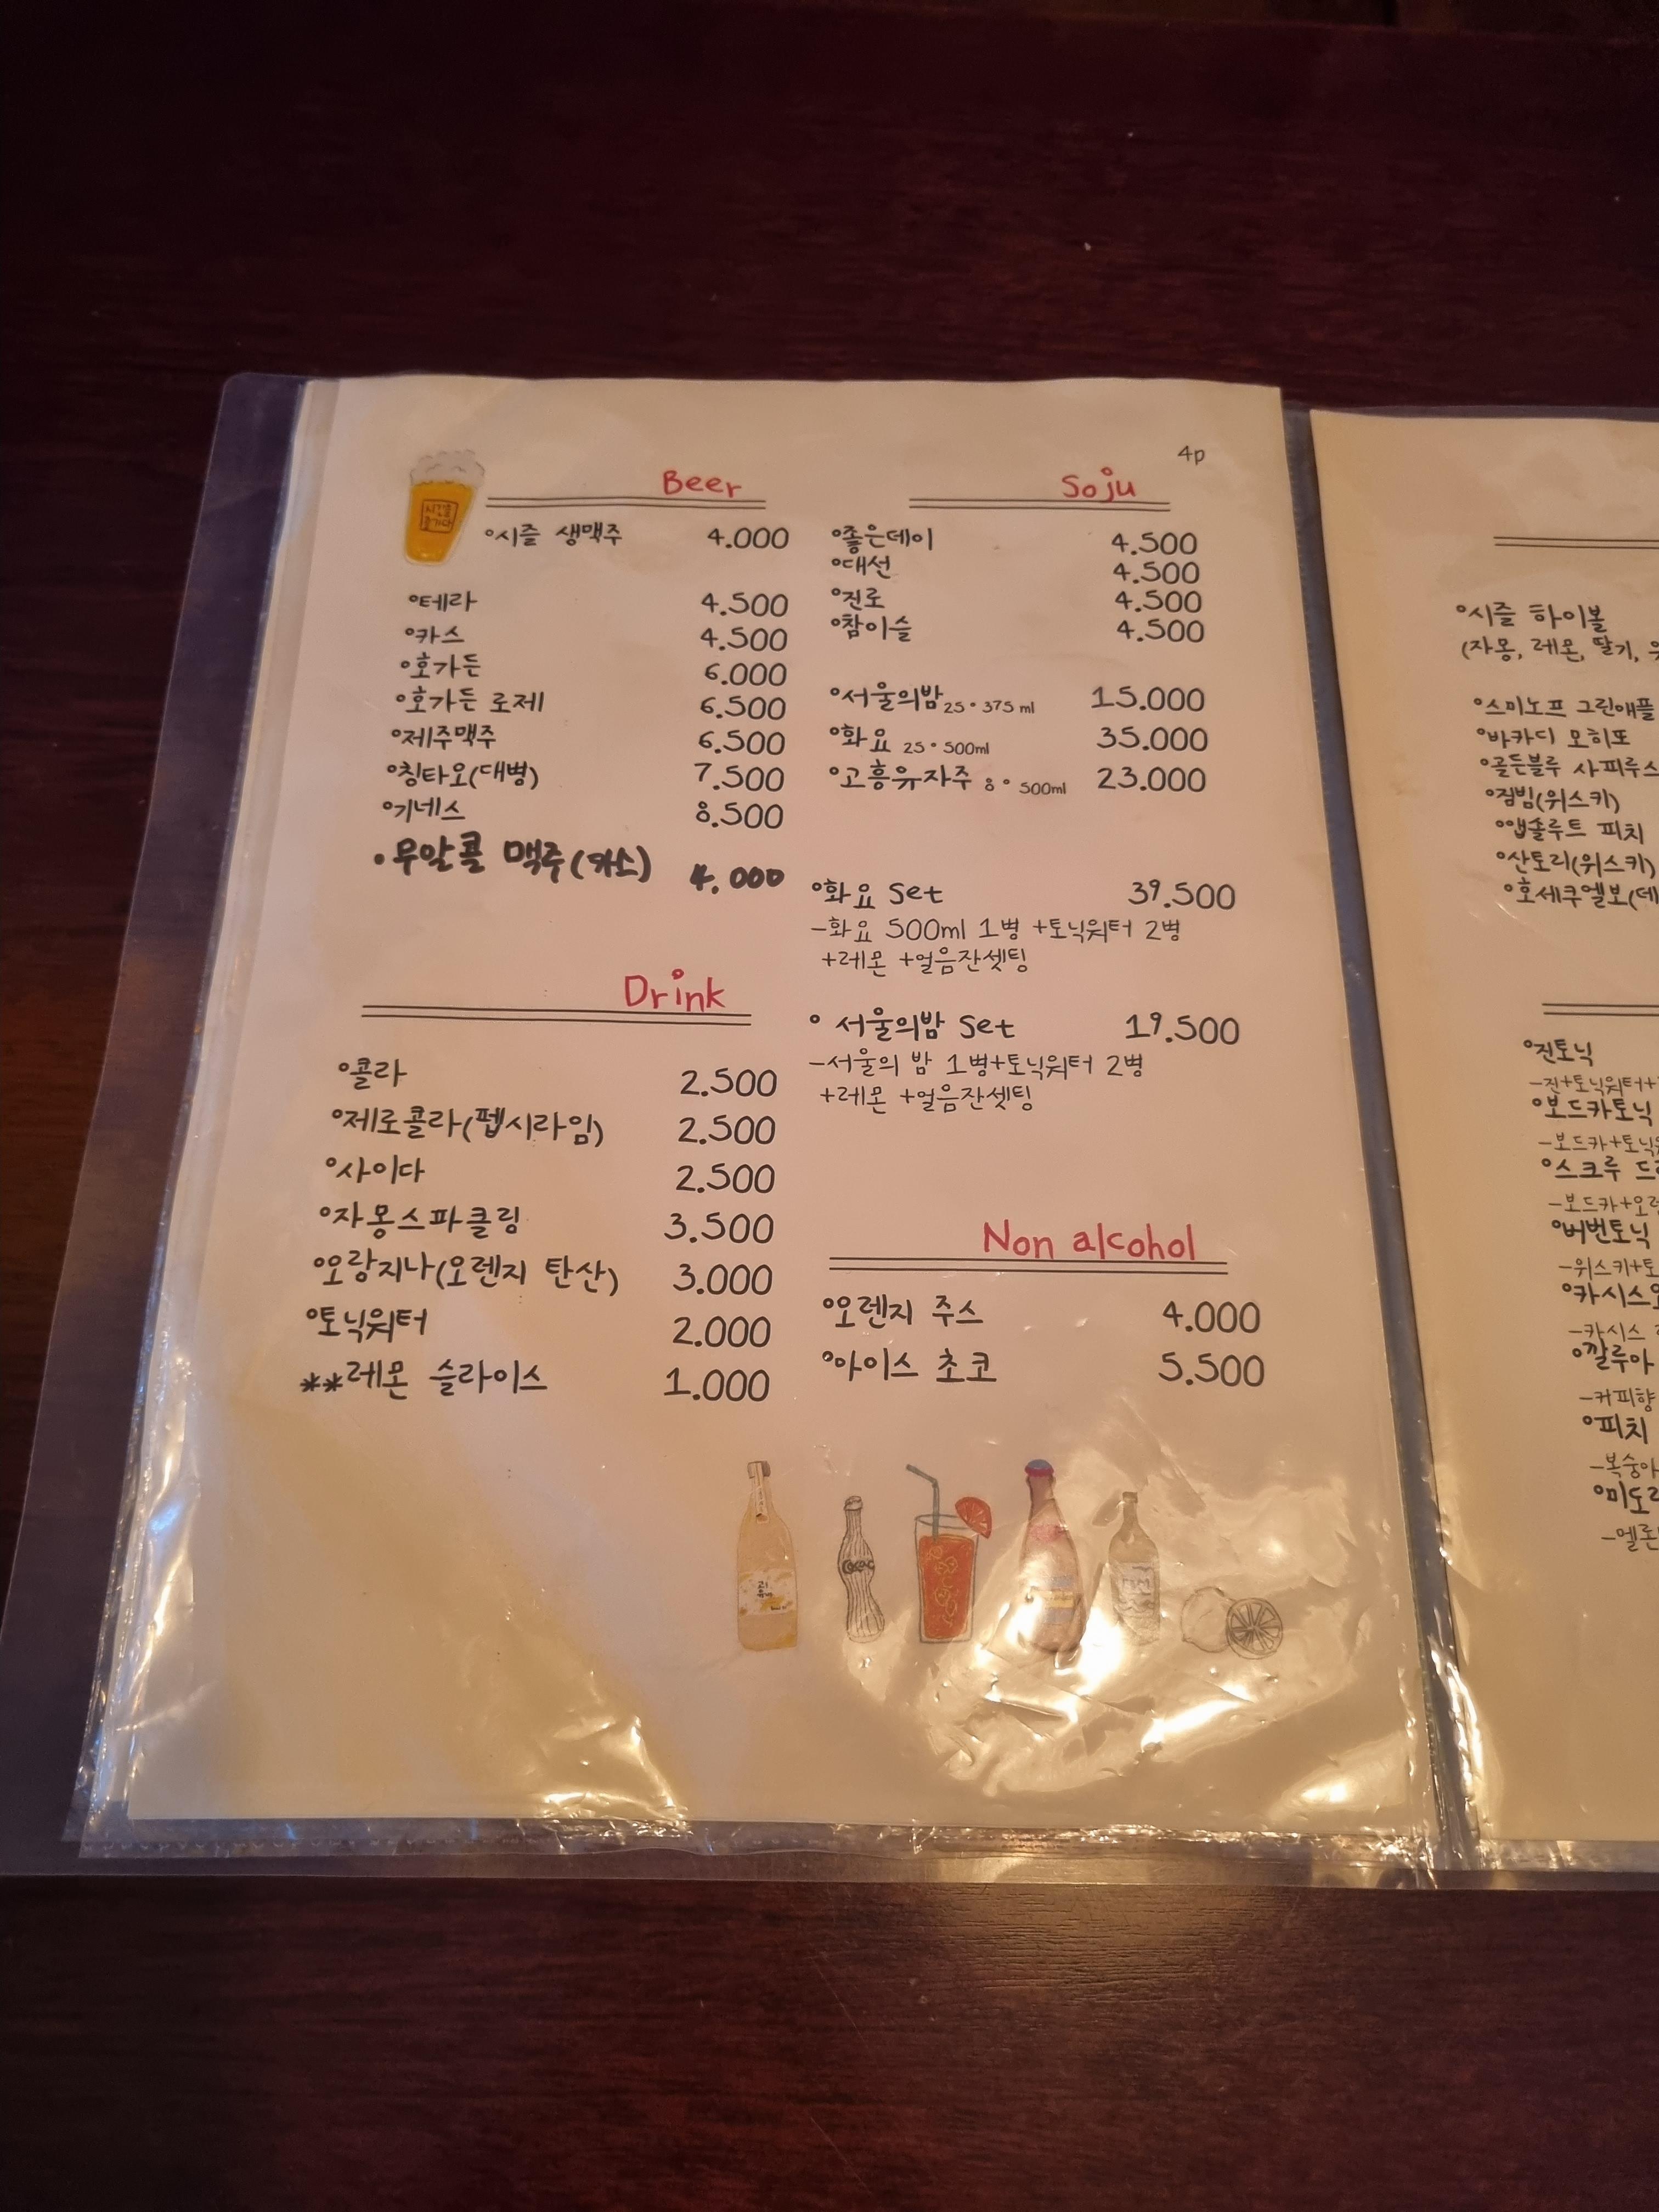 4p
Beer
시즐 생맥주 4.000
테라 4.500
카스 4.500
호가든 6.000
호가든 로제 6.500
제주맥주 6.500
칭타오(대병) 7.500
기네스 8.500
무알콜 맥주(카스) 4.000
Drink
콜라 2.500
제로콜라(펩시라임) 2.500
사이다 2.500
자몽스파클링 3.500
오랑지나(오렌지 탄산) 3.000
토닉워터 2.000
**레몬 슬라이스 1.000
Soju
좋은데이 4.500
대선 4.500
진로 4.500
참이슬 4.500
서울의밤 25° 375 ml 15.000
화요 25° 500ml 35.000
고흥유자주 8° 500ml 23.000
화요 set 39.500
-화요 500ml 1병 +토닉워터 2병
+레몬 +얼음잔셋팅
서울의밤 set 19.500
-서울의 밤 1병+토닉워터 2병
+레몬 +얼음잔셋팅
Non alcohol
오렌지 주스 4.000
아이스 초코 5.500
시즐 하이볼
(자몽, 레몬, 딸기,
스미노프 그린애플
바카디 모히또
골든블루 사피루스
짐빔(위스키)
앱솔루트 피치
산토리(위스키)
호세쿠엘보(데
진토닉
-진+토닉워터+
보드카토닉
-보드카+토닉
스크루 드
-보드카+오렌
버번토닉
-위스키+토
카시스오
-카시스
깔루아
-커피향
피치
-복숭아
미도리
-멜론